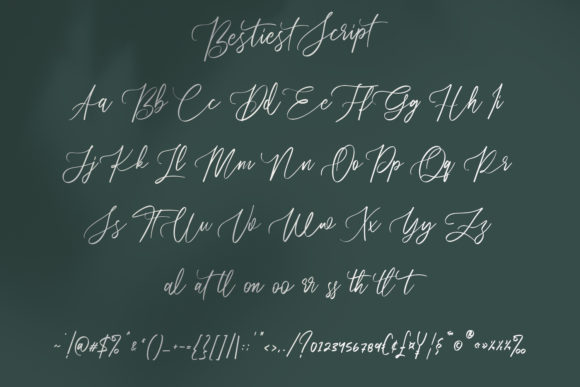 Bestiest Script
Aa Bb Cc Dd Ee Ff Gg Hh Ii
Jj Kk Ll Mm Nn Oo Pp Qq Rr
Ss Tt Uu Vv Ww Xx Yy Zz
al at tl on oo rr ss th tl t
~ ! @ # $ % ^ & * ( ) _ + - = { } [ ] | \ : ; " ' < > , . / ? 0 1 2 3 4 5 6 7 8 9